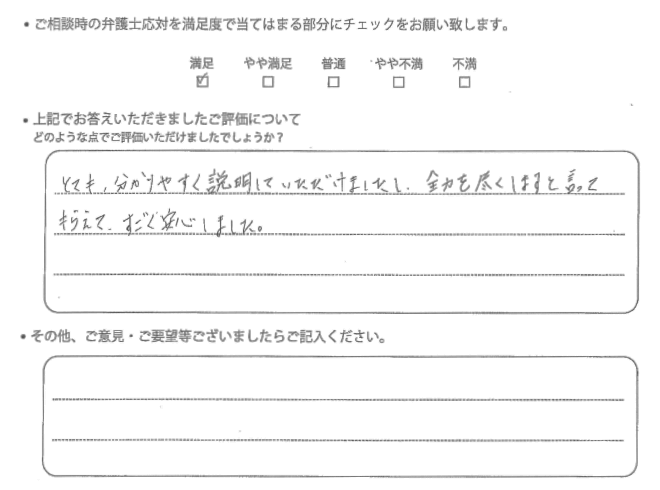 • ご相談時の弁護士応対を満足度で当てはまる部分にチェックをお願い致します。
満足 やや満足 普通 やや不満 不満
☑ ☐ ☐ ☐ ☐
• 上記でお答えいただきましたご評価について
どのような点でご評価いただけましたでしょうか？
とても、分かりやすく説明していただけましたし、全力を尽くしますと言って
もらえて、すごく安心しました。
• その他、ご意見・ご要望等ございましたらご記入ください。